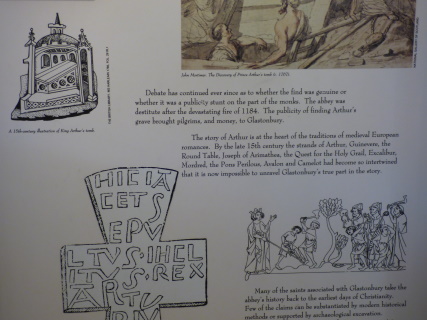 John Mortimer, The Discovery of Prince Arthur's tomb
A 15th-century illustration of King Arthur's tomb.
Debate has continued ever since as to whether the find was genuine or
whether it was a publicity stunt on the part of the monks. The abbey was
destitute after the devastating fire of 1184. The publicity of finding Arthur's
grave brought pilgrims, and money, to Glastonbury.
The story of Arthur is at the heart of the traditions of medieval European
romances. By the late 15th century the strands of Arthur, Guinevere, the
Round Table, Joseph of Arimathea, the Quest for the Holy Grail, Excalibur,
Mordred, the Pons Perilous, Avalon and Camelot had become so intertwined
that it is now impossible to unravel Glastonbury's true part in the story.
HIC IA
CET S
EPV
LTVS·INCL
ITVS·REX
ARTV
Many of the saints associated with Glastonbury take the
abbey's history back to the earliest days of Christianity.
Few of the claims can be substantiated by modern historical
methods or supported by archaeological excavation.